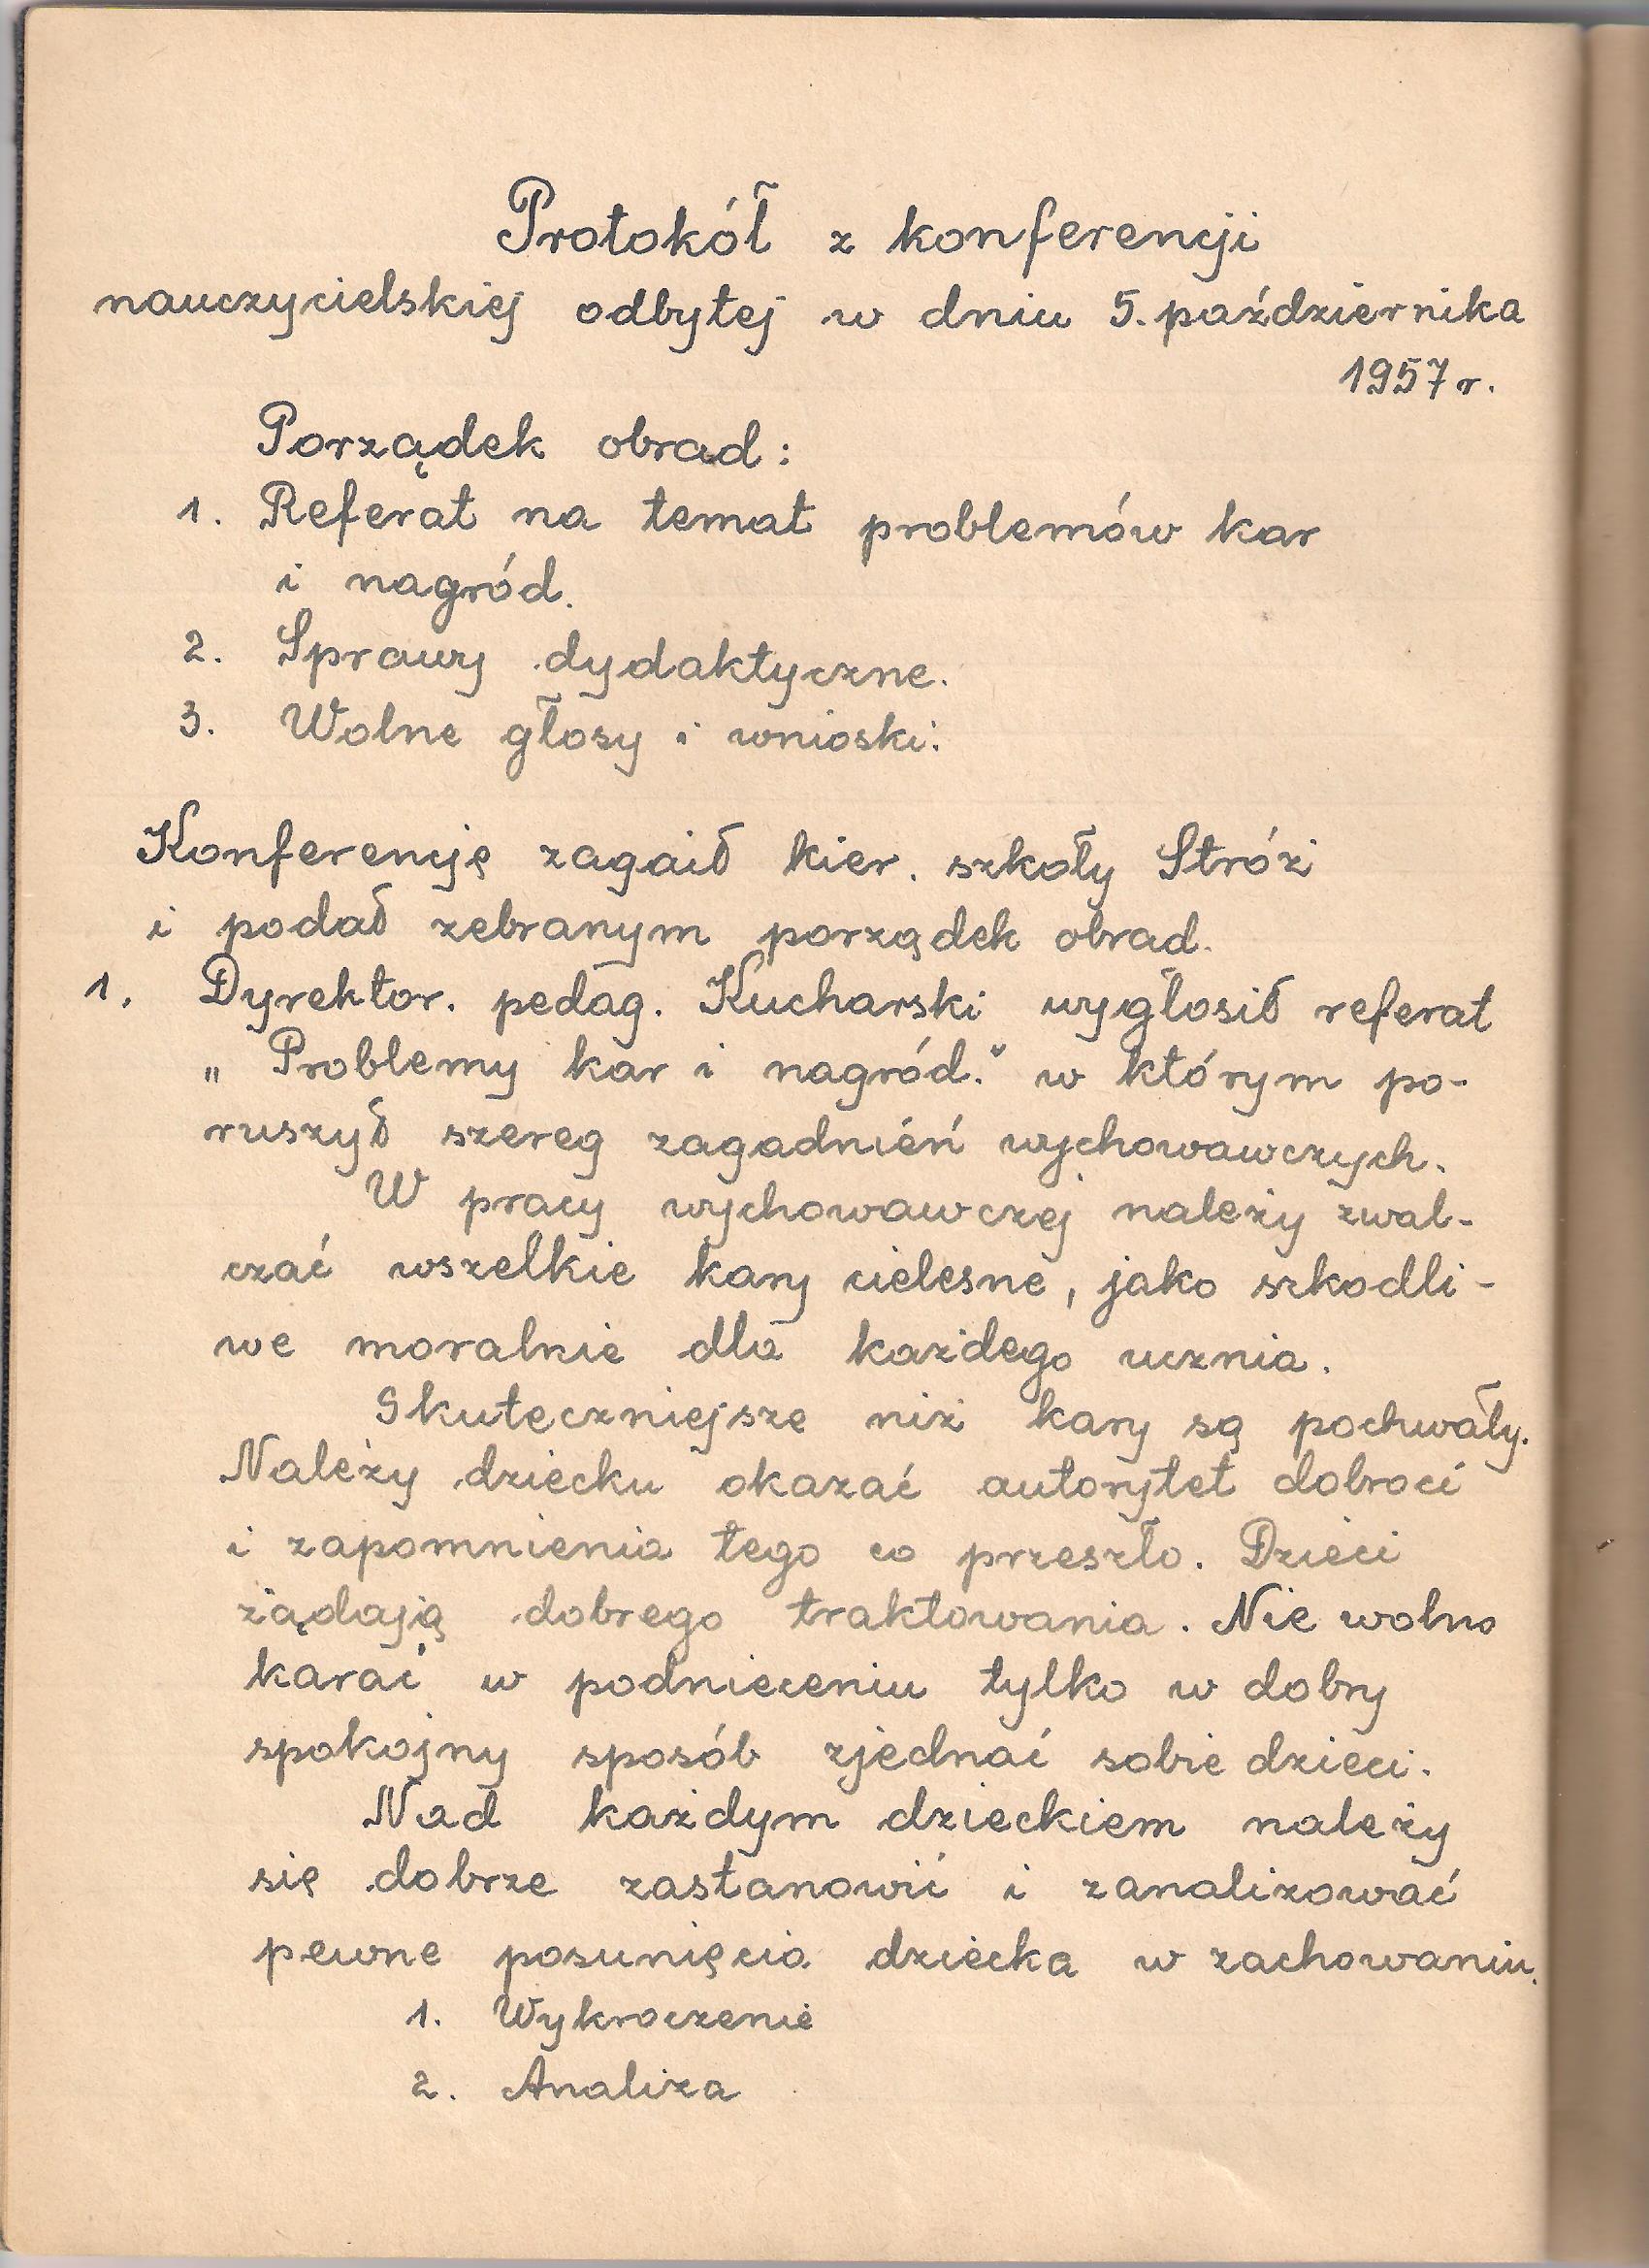 Protokół z konferencji
nauczycielskiej odbytej w dniu 5. października
1957 r.
Porządek obrad:
1. Referat na temat problemów kar
i nagród.
2. Sprawy dydaktyczne.
3. Wolne głosy i wnioski.
Konferencję zagaił kier. szkoły Stróż
i podał zebranym porządek obrad.
1. Dyrektor. pedag. Kucharski wygłosił referat
„Problemy kar i nagród." w którym po-
ruszył szereg zagadnień wychowawczych.
W pracy wychowawczej należy zwal-
czać wszelkie kary cielesne, jako szkodli-
we moralnie dla każdego ucznia.
Skuteczniejsze niż kary są pochwały.
Należy dziecku okazać autorytet dobroci
i zapomnienia tego co przeszło. Dzieci
żądają dobrego traktowania. Nie wolno
karać w podnieceniu tylko w dobry
spokojny sposób zjednać sobie dzieci.
Nad każdym dzieckiem należy
się dobrze zastanowić i zanalizować
pewne posunięcia dziecka w zachowaniu.
1. Wykroczenie
2. Analiza